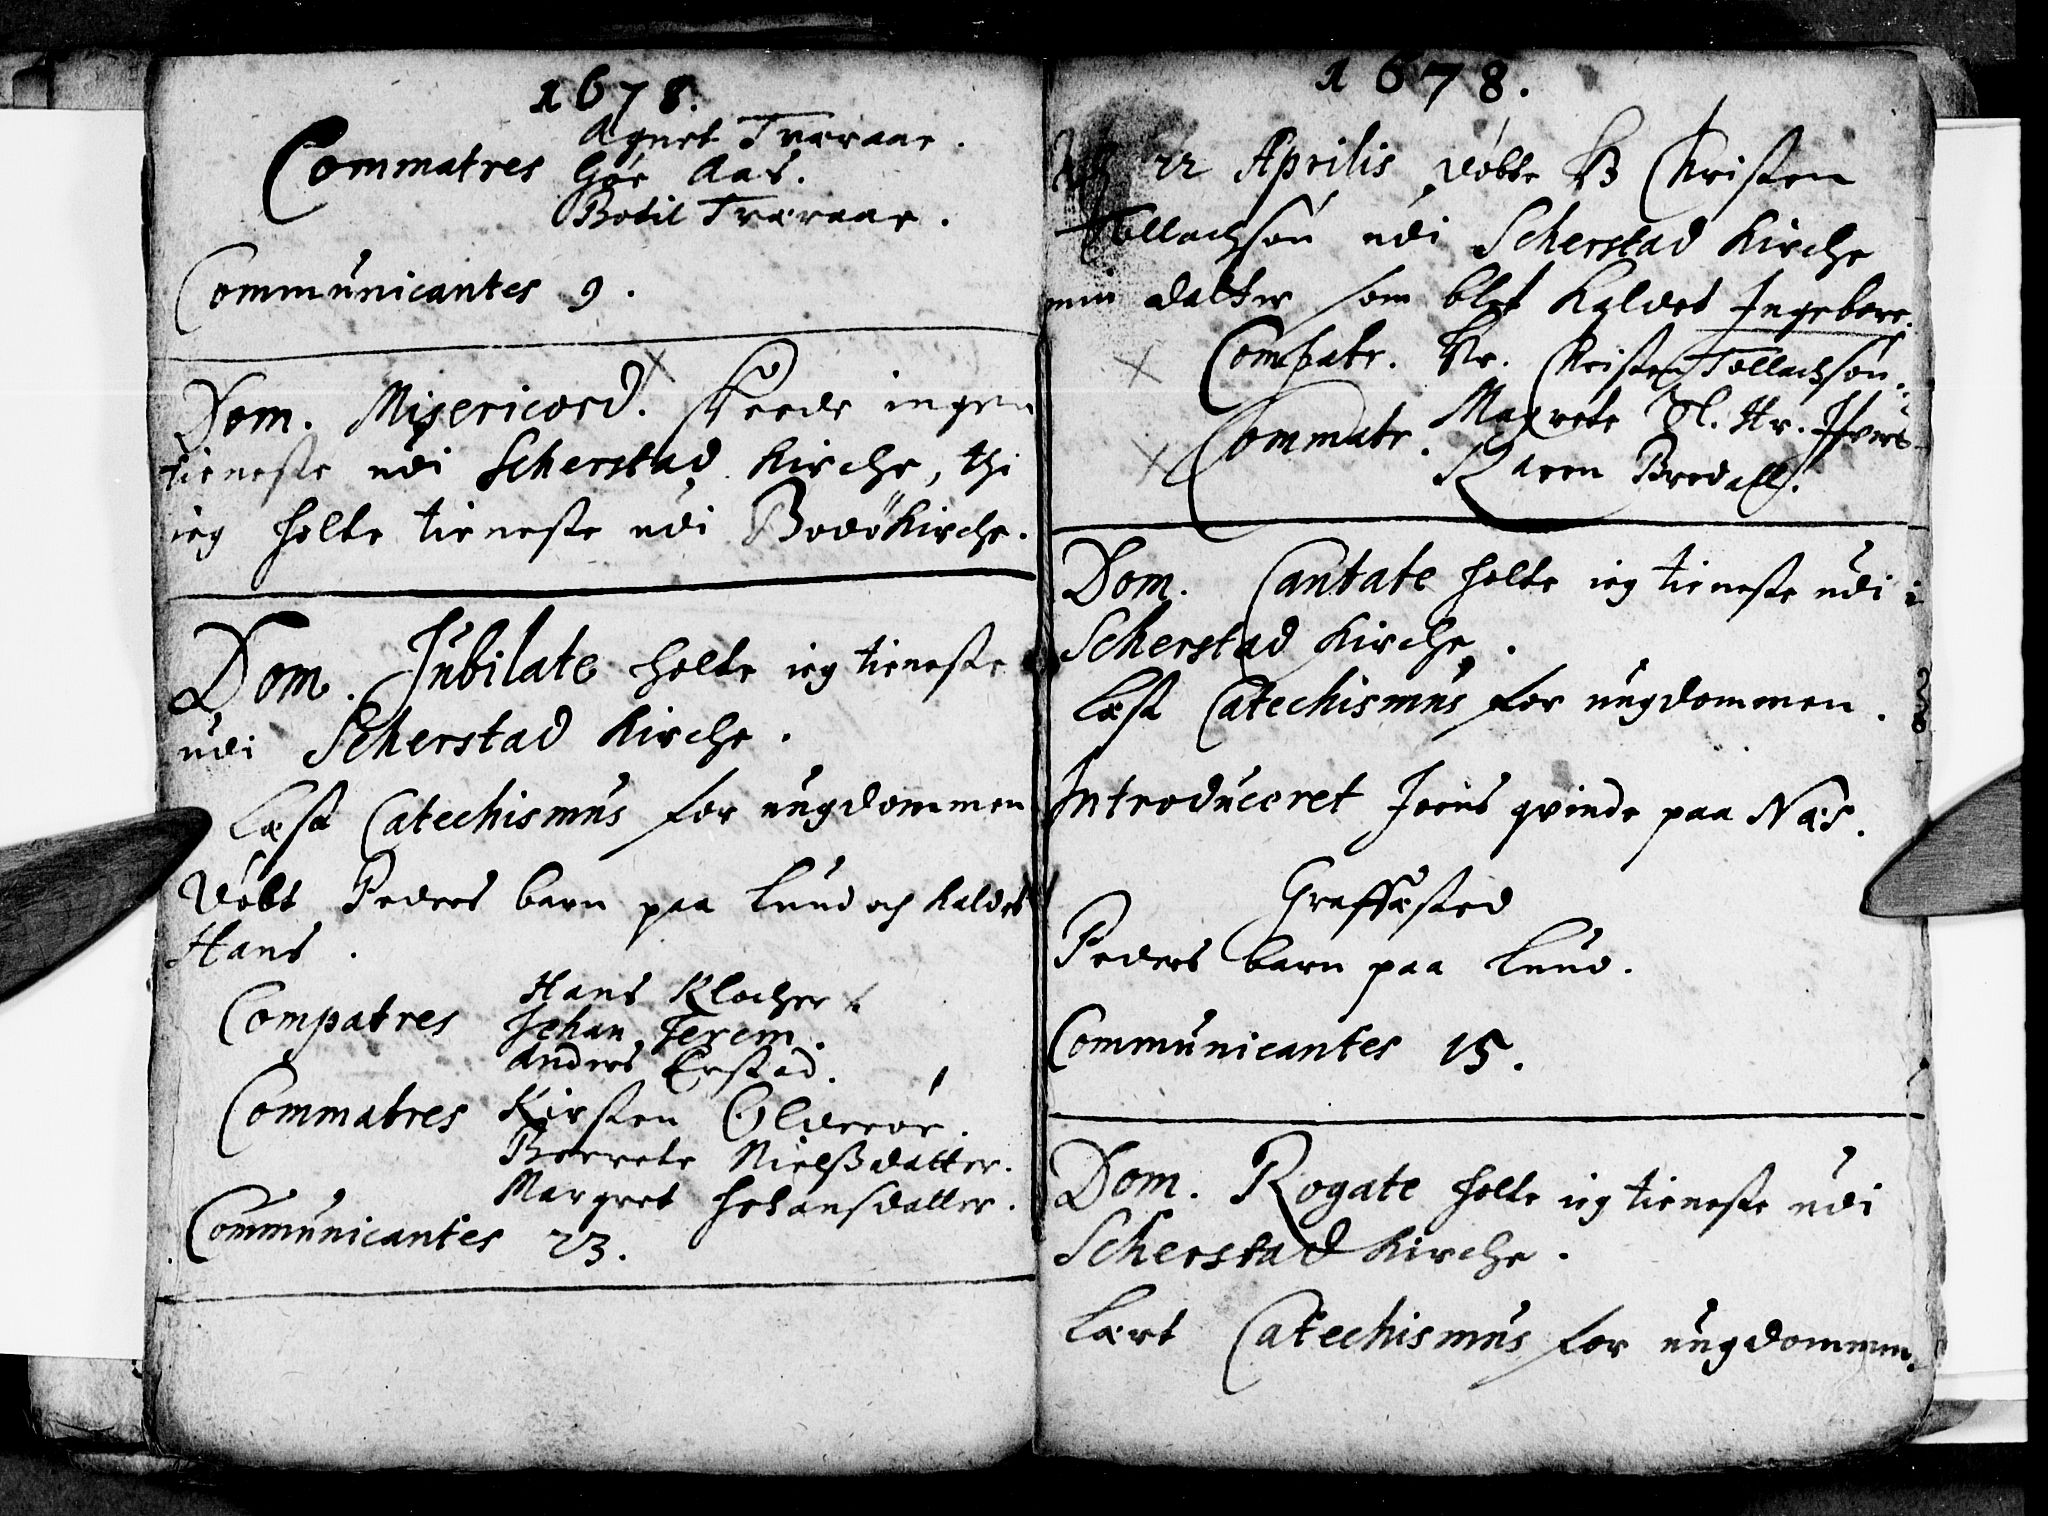 1678.
Commatres Agnet Tværaae.
Göe Aas.
Bodil Tværaae.
Communicantes 9.
Dom. Misericord. skeede ingen
tieneste udi Scherstad Kirche, thi
ieg holte tieneste udi Bodö Kirche.
Dom. Jubilate holte ieg tieneste
udi Scherstad Kirche.
Læst Catechismus for ungdommen
Döbt Peders barn paa Lund och kaldet
Hans.
Compatres Hans Klocher
Johan Ferem.
Anders Erstad.
Commatres Kirsten Olderöe.
Berrete Nielßdatter.
Margret Johansdatter.
Communicantes 23.
1678.
22 Aprilis döbte Hr Christen
Tollachsön udi Scherstad Kirche
min datter som blef kaldet Ingeborre.
Compatr. Hr. Christen Tollachsön.
Commatr. Magrete Sl. Hr. Ifvers
Karen Bredall.
Dom. Cantate holte ieg tieneste udi
Scherstad Kirche.
Læst Catechismus for ungdommen.
Introduceret Jens qvinde paa Næs.
Graffæsted
Peders barn paa Lund.
Communicantes 15.
Dom. Rogate holte ieg tieneste udi
Scherstad Kirche.
Lært Catechismus for ungdommen.